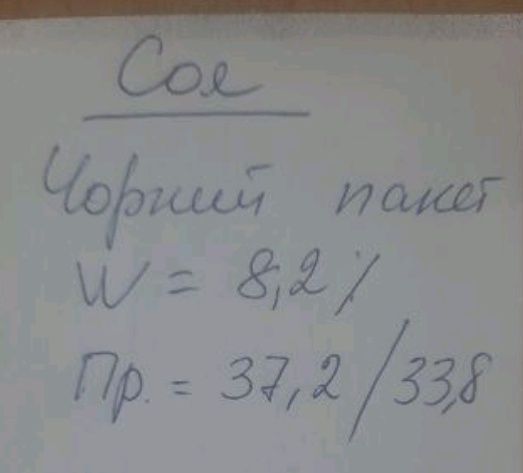 Соя
Чорний пакет
W = 8,2 %
Пр. = 37,2 / 33,8